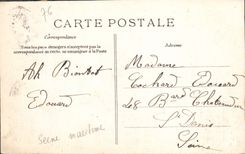 76
CARTE POSTALE
Correspondance
Adresse
Tous les pays étrangers n'acceptent pas la correspondance
au recto. (Se renseigner à la Poste)
Madame
Ah Bientot
Cochard Edouard
Edouard
68 Bard Chateaudun
St Denis
Seine
Seine maritime